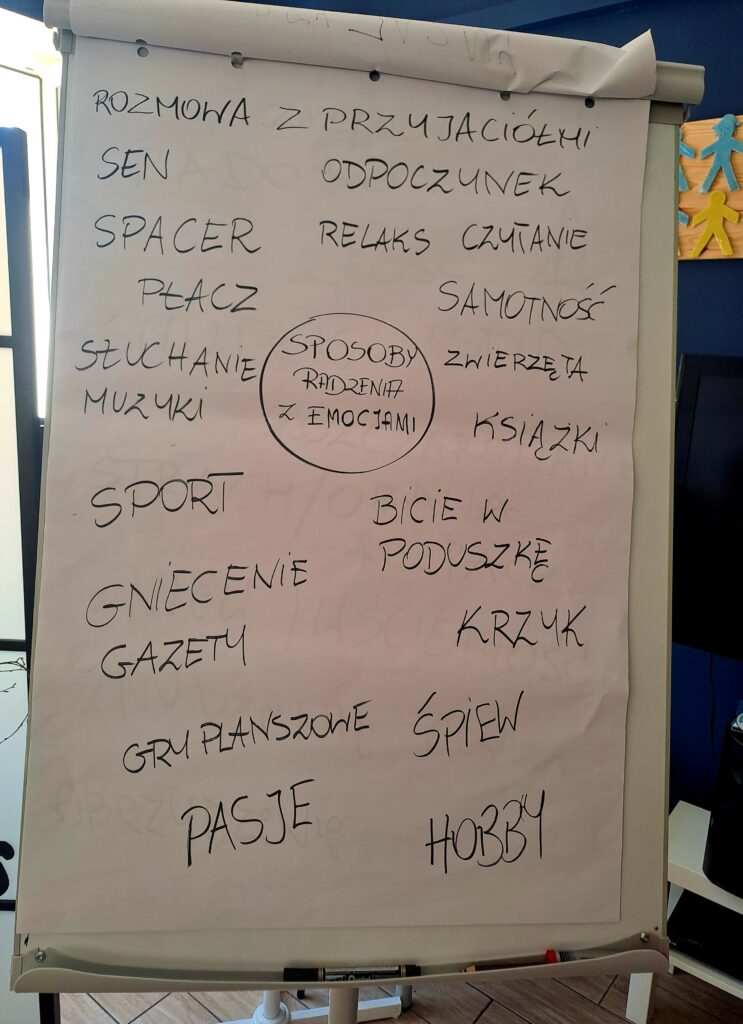 ROZMOWA Z PRZYJACIÓŁMI
SEN
ODPOCZYNEK
SPACER
RELAKS CZYTANIE
PŁACZ
SAMOTNOŚĆ
SŁUCHANIE
MUZYKI
SPOSOBY
RADZENIA
Z EMOCJAMI
ZWIERZĘTA
KSIĄŻKI
SPORT
BICIE W
PODUSZKĘ
GNIECENIE
GAZETY
KRZYK
GRY PLANSZOWE
ŚPIEW
PASJE
HOBBY